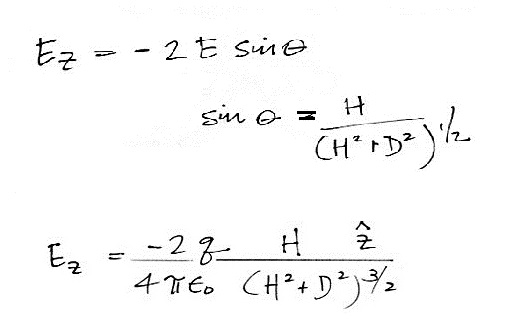 E_z = - 2 E sin θ
sin θ = H / (H² + D²)^1/2
E_z = -2 q / 4 π ε₀ H ẑ / (H² + D²)^3/2